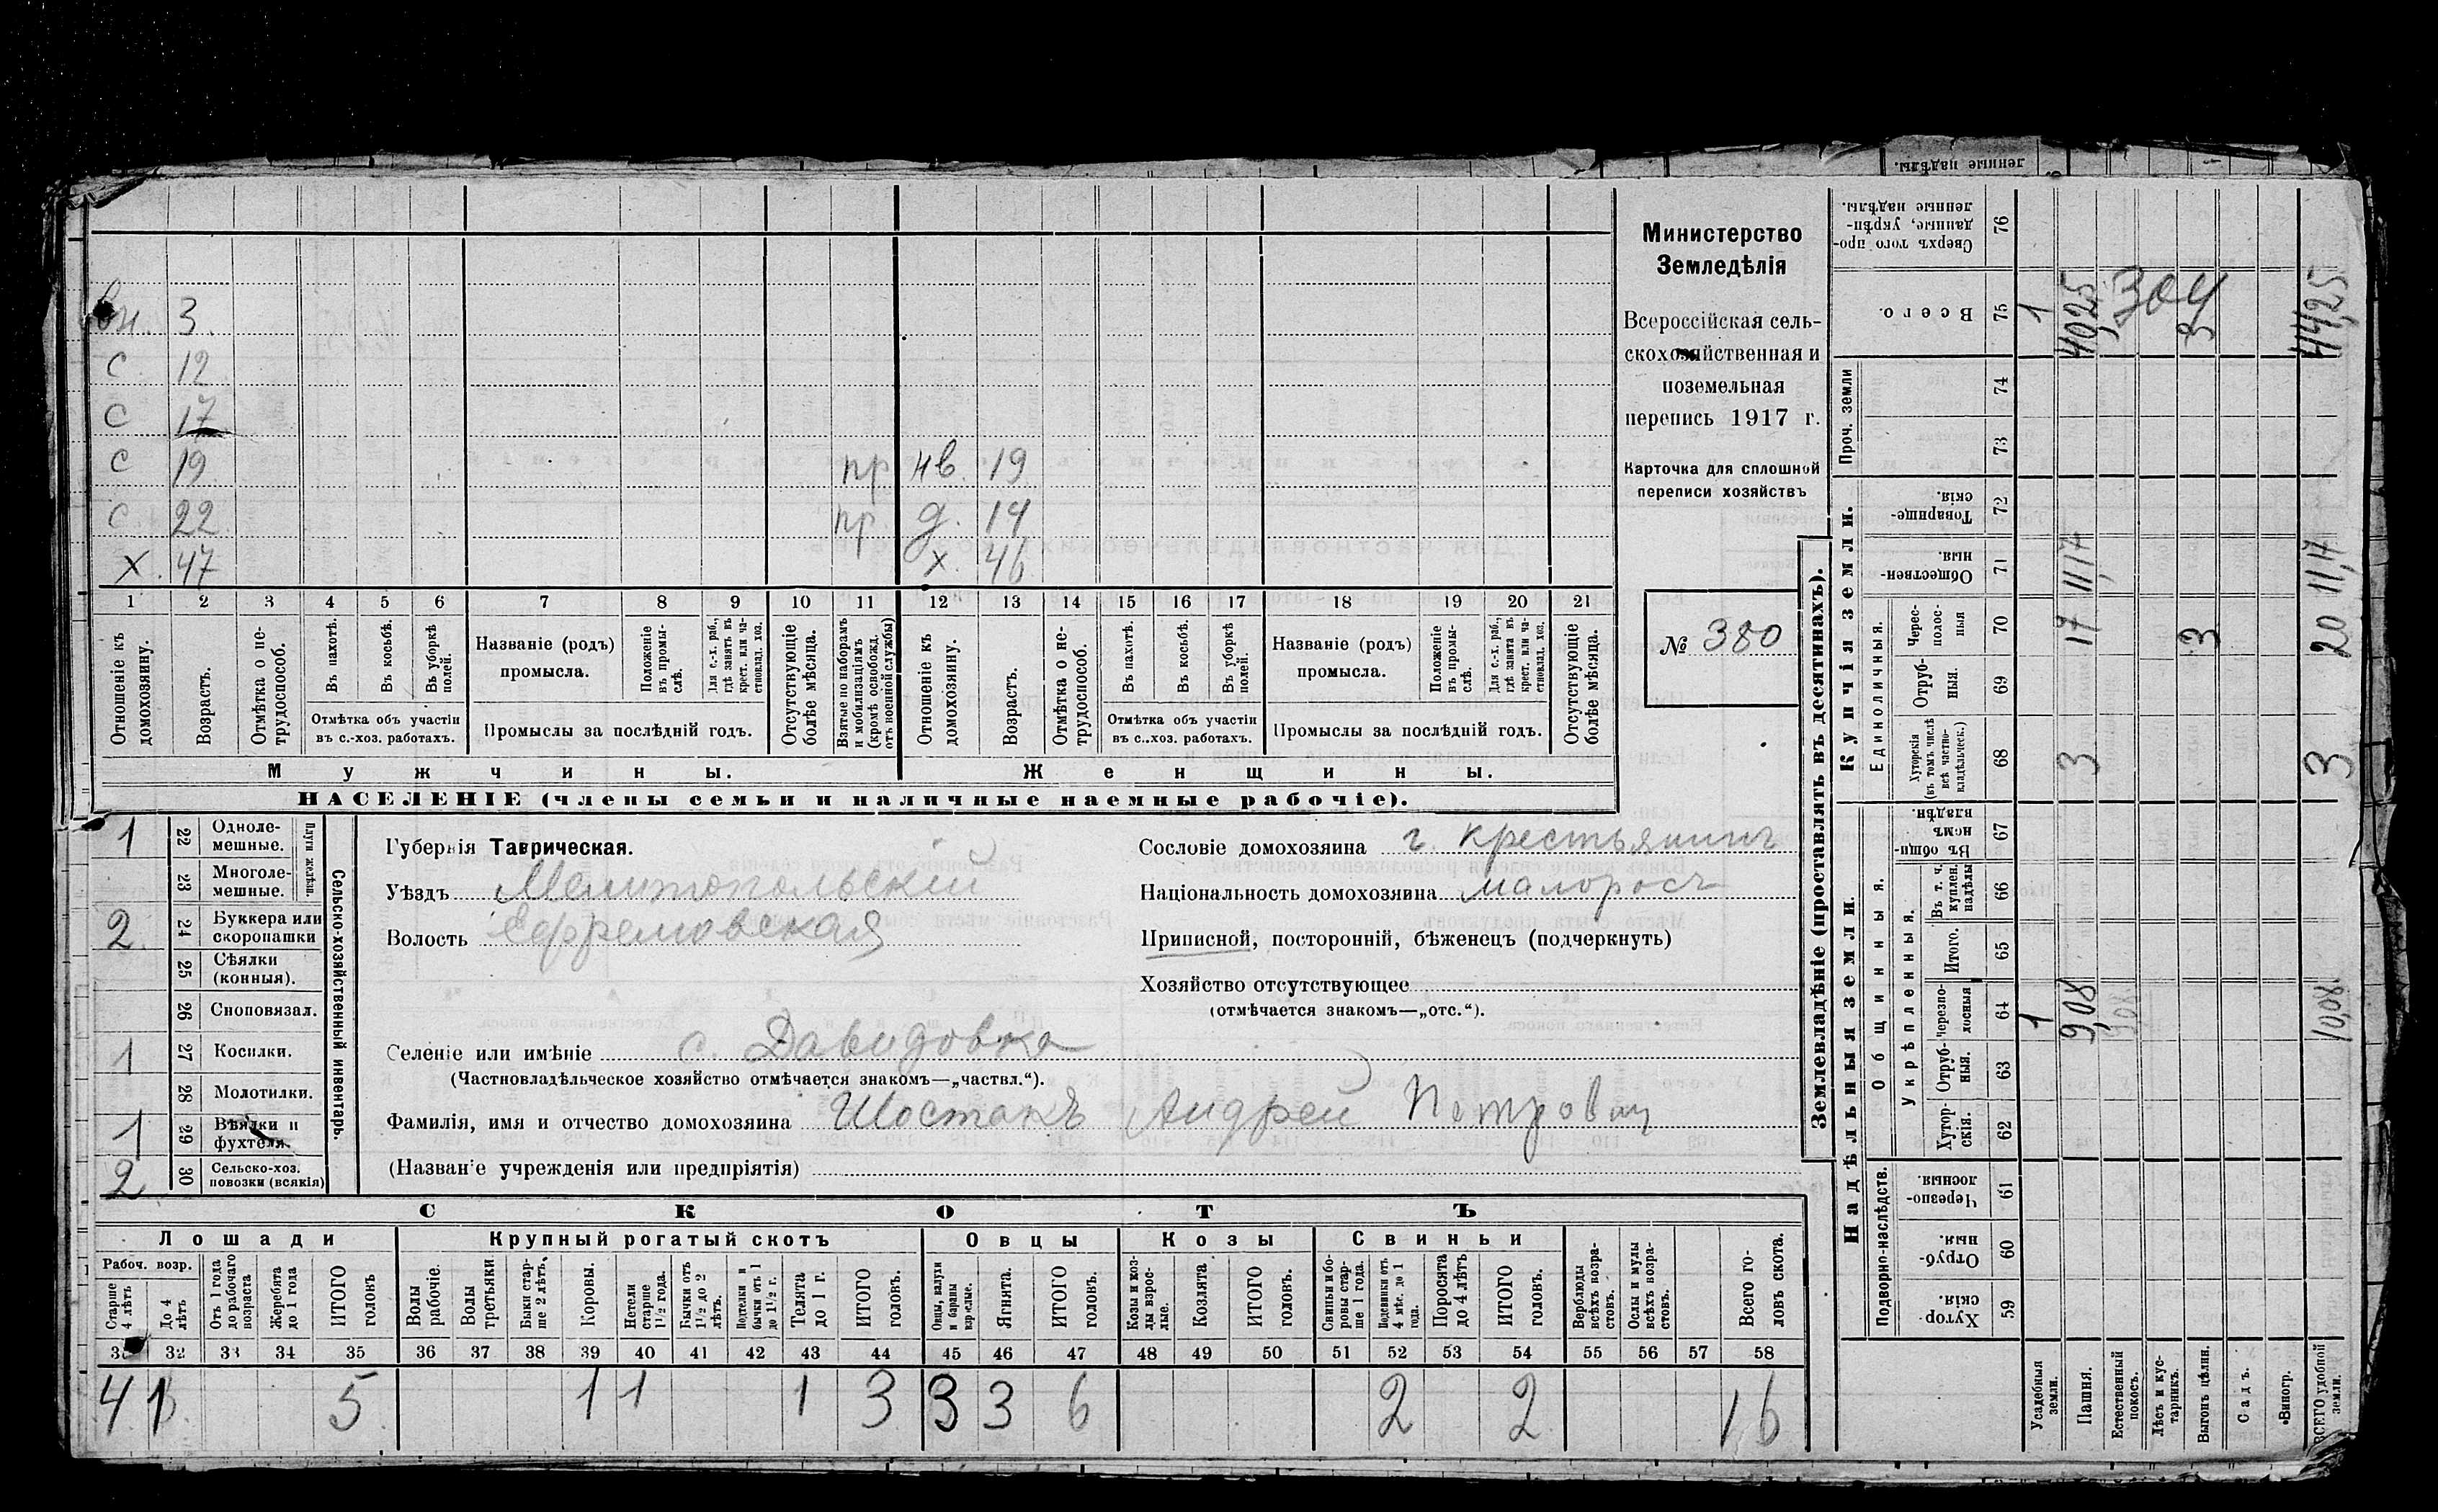 вн. 3
с 12
с 17
с 19 пр нв. 19
с. 22 пр. д. 14
х. 47 х. 46
1 2 3 4 5 6 7 8 9 10 11 12 13 14 15 16 17 18 19 20 21
Отношеніе къ домохозяину.
Возрастъ.
Отмѣтка о нетрудоспособ.
Въ пахотѣ.
Въ косьбѣ.
Въ уборкѣ полей.
Отмѣтка объ участіи въ с.-хоз. работахъ.
Названіе (родъ) промысла.
Положеніе въ промыслѣ.
Для с.-х. раб., гдѣ занятъ въ крест. или частновлад. хоз.
Промыслы за послѣдній годъ.
Отсутствующіе болѣе мѣсяца.
Взятые по наборамъ и мобилизаціямъ (кромѣ освобожд. отъ военной службы)
Отношеніе къ домохозяину.
Возрастъ.
Отмѣтка о нетрудоспособ.
Въ пахотѣ.
Въ косьбѣ.
Въ уборкѣ полей.
Отмѣтка объ участіи въ с.-хоз. работахъ.
Названіе (родъ) промысла.
Положеніе въ промыслѣ.
Для с.-х. раб., гдѣ занятъ въ крест. или частновлад. хоз.
Промыслы за послѣдній годъ.
Отсутствующіе болѣе мѣсяца.
Мужчины. Женщины.
НАСЕЛЕНІЕ (члены семьи и наличные наемные рабочіе).
Министерство
Земледѣлія
Всероссійская сель-
скохозяйственная и
поземельная
перепись 1917 г.
Карточка для сплошной
переписи хозяйствъ
№ 380
Сельско-хозяйственный инвентарь.
1 22 Одноле-мешные.
23 Многоле-мешные.
2 24 Буккера или скоропашки
25 Сѣялки (конныя).
26 Сноповязал.
1 27 Косилки.
28 Молотилки.
1 29 Вѣялки и фухтеля.
2 30 Сельско-хоз. повозки (всякія)
Губернія Таврическая.
Уѣздъ Мелитопольскій
Волость Ефремовская
Селеніе или имѣніе с. Давидовка
(Частновладѣльческое хозяйство отмѣчается знакомъ—„частвл.“).
Фамилія, имя и отчество домохозяина Шостакъ Андрей Петрович
(Названіе учрежденія или предпріятія)
Сословіе домохозяина г. крестьянинъ
Національность домохозяина малоросъ
Приписной, посторонній, бѣженецъ (подчеркнуть)
Хозяйство отсутствующее
(отмѣчается знакомъ—„отс.“).
СКОТЪ
Лошади Крупный рогатый скотъ Овцы Козы Свиньи
Рабоч. возр.
Старше 4 лѣтъ
До 4 лѣтъ
Отъ 1 года до рабочаго возраста
Жеребята до 1 года
ИТОГО головъ
Волы рабочіе.
Волы третьяки
Быки старше 2 лѣтъ.
Коровы.
Нетели старше 1½ года.
Бычки отъ 1½ до 2 лѣтъ.
Подтелки и бычки отъ 1 до 1½ г.
Телята до 1 г.
ИТОГО головъ.
Овцы, валухи и бараны взрослые.
Ягнята.
ИТОГО головъ.
Козы и козлы взрослые.
Козлята
ИТОГО головъ.
Свиньи и боровы старше 1 года.
Подсвинки отъ 4 мѣс. до 1 года.
Поросята до 4 лѣтъ
ИТОГО головъ.
Верблюды всѣхъ возрастовъ.
Ослы и мулы всѣхъ возрастовъ.
Всего головъ скота.
32 33 34 35 36 37 38 39 40 41 42 43 44 45 46 47 48 49 50 51 52 53 54 55 56 57 58
4 1 5 1 1 1 3 3 3 6 2 2 16
Землевладѣніе (проставлять въ десятинахъ).
Надѣльныя земли. Купчія земли.
Подворно-наслѣдств. Общинныя. Укрѣпленныя. Единоличныя. Проч. земли
Сверхъ того проданные, укрѣпленные надѣлы. 76
Всего. 75
74
73
Товарищескія. 72
Общественныя. 71
Чересполосныя 70
Отрубныя. 69
Хуторскія (въ томъ числѣ всѣ частновладѣльческ.) 68
Въ общинномъ владѣн. 67
Въ т. ч. куплен. надѣлы 66
Итого. 65
Черезполосныя 64
Отрубныя. 63
Хуторскія. 62
Черезполосныя. 61
Отрубныя. 60
Хуторскія. 59
Усадебныя земли. 1 1
Пашня. 9,08 3 17 11,17 40,25
Естественный покосъ.
Лѣсъ и кустарникъ.
Выгонъ цѣлин. 3 3
Садъ.
Виногр.
ВСЕГО удобной земли. 10,08 3 20 11,17 44,25
304
ленные надѣлы.